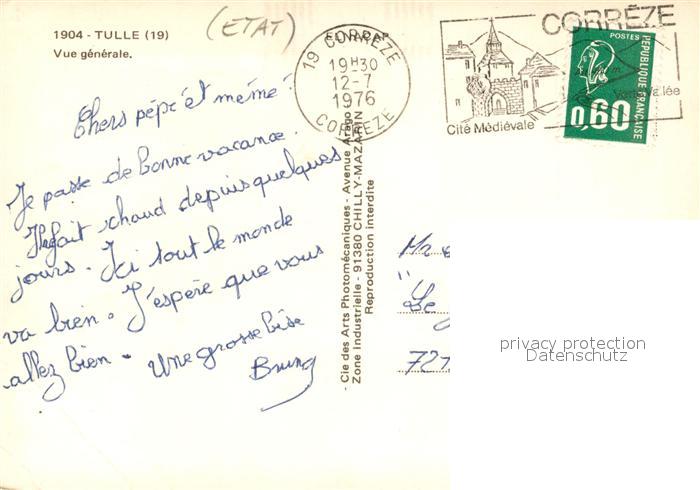 1904 - TULLE (19)
Vue générale.
(ETAT)
Chers pépé et mémé !
Je passe de bonne vacance.
Il fait schaud depuis quelques
jours. Ici tout le monde
va bien. J'espère que vous
allez bien. Une grosse bise
Bruno
EUROPAP
- Cie des Arts Photomécaniques - Avenue Arago
Zone Industrielle - 91380 CHILLY-MAZARIN
Reproduction interdite
19 CORREZE
19H30
12-7
1976
CORREZE
CORRÈZE
Cité Médiévale
POSTES
REPUBLIQUE FRANÇAISE
0,60
Mr
Le
72
privacy protection
Datenschutz